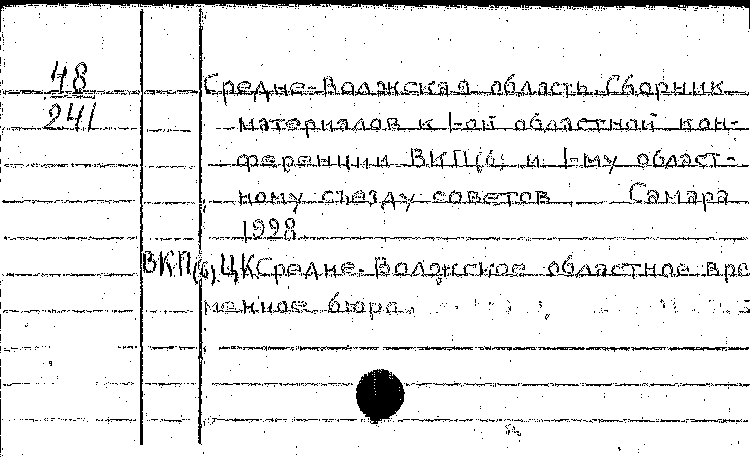 48
241
Средне-Волжская область. Сборник
материалов к I-ой областной кон-
ференции ВКП(б) и I-му област-
ному съезду советов Самара
1998
ВКП(б) ЦК Средне-Волжское областное вре
менное бюро.